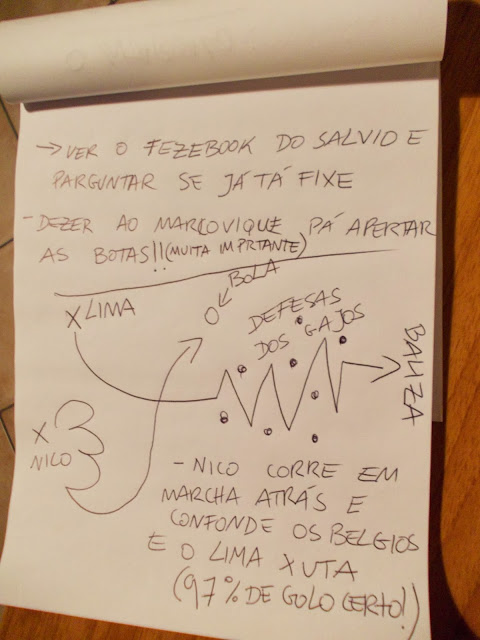 → VER O FEZEBOOK DO SALVIO E
PARGUNTAR SE JÁ TÁ FIXE
- DEZER AO MARCOVIQUE PÁ APERTAR
AS BOTAS!! (MUITA IMPRTANTE)
BOLA
X LIMA
DEFESAS
DOS GAJOS
BALIZA
X
NICO
- NICO CORRE EM
MARCHA ATRÁS E
CONFONDE OS BELGIOS
E O LIMA XUTA
(97% DE GOLO CERTO!)